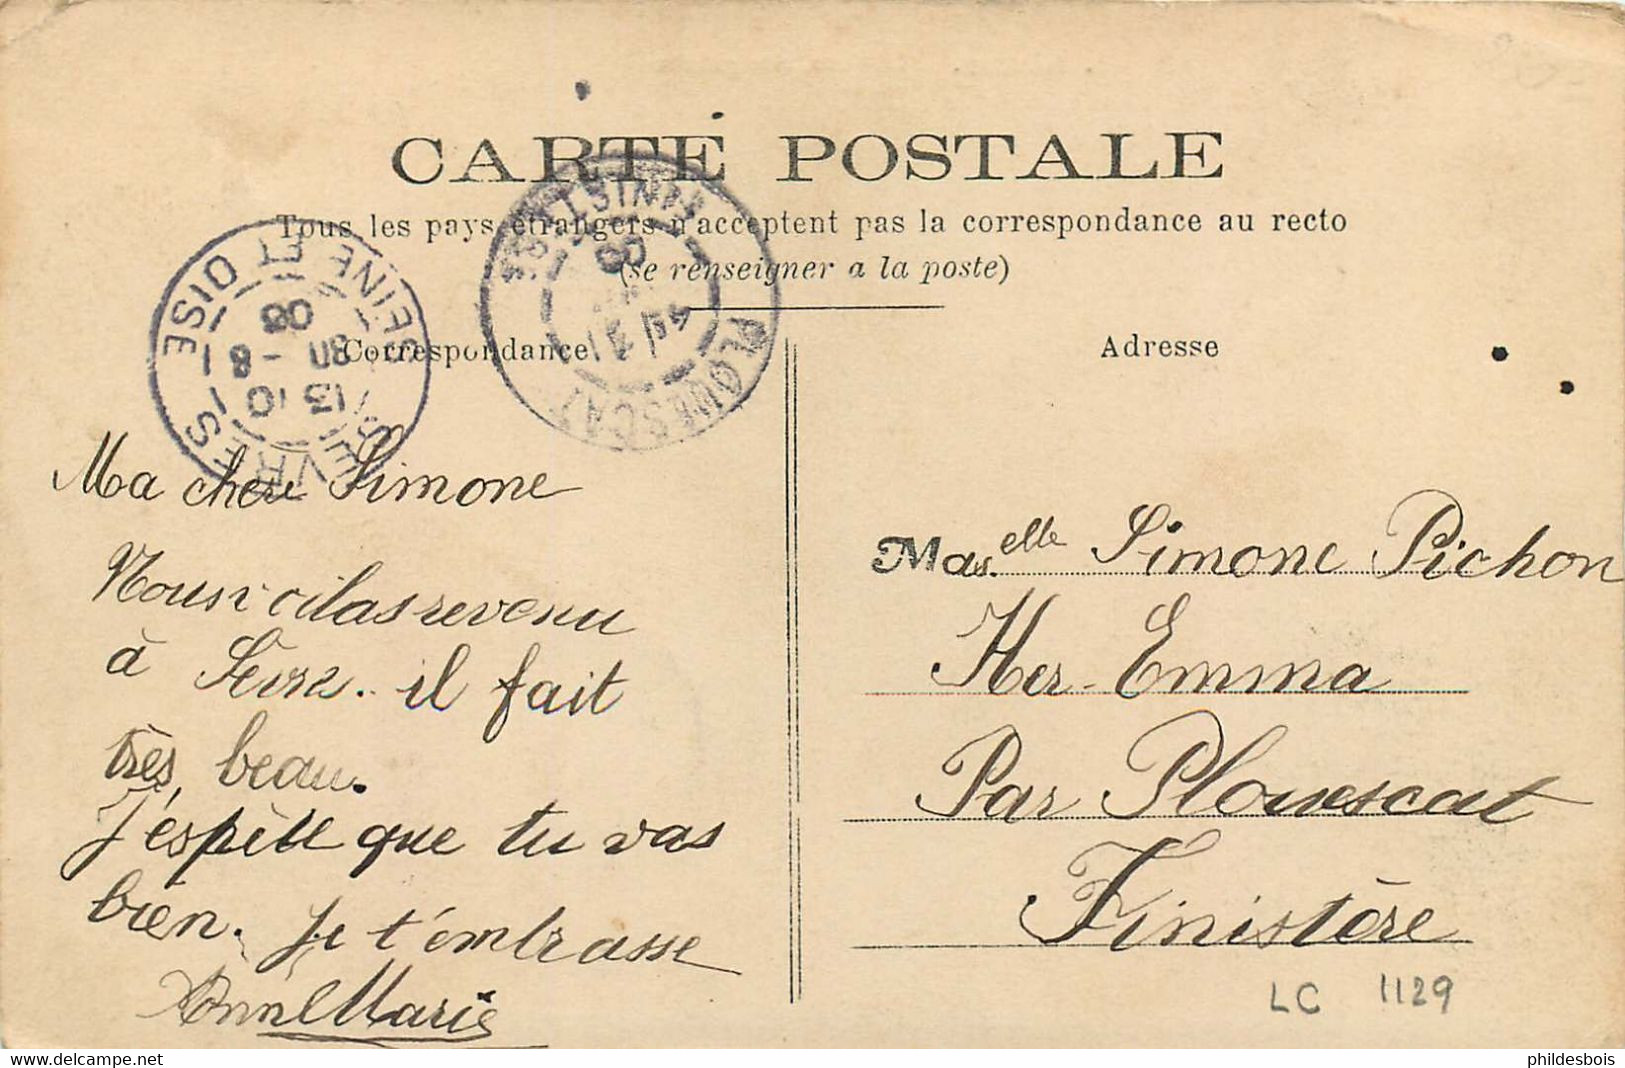 CARTE POSTALE
Tous les pays étrangers n'acceptent pas la correspondance au recto
(se renseigner a la poste)
SEVRES
SEINE ET OISE
13 10
8 - 
08
PLOUESCAT
FINISTÈRE
08
Correspondance
Ma chere Simone
Nous voilas revenu
à Sevre. il fait
très beau.
J'espère que tu vas
bien. Je t'émbrasse
Anne Marie
Adresse
Mas.elle Simone Pichon
Ker-Emma
Par Plouescat
Finistère
LC 1129
phildesbois
www.delcampe.net